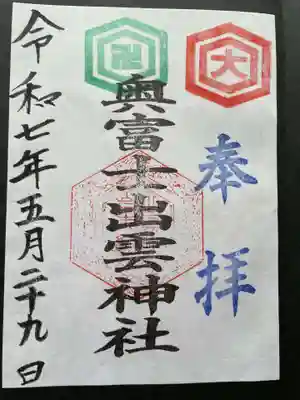 奉拝
大
卍
奥富士出雲神社
令和七年五月二十九日